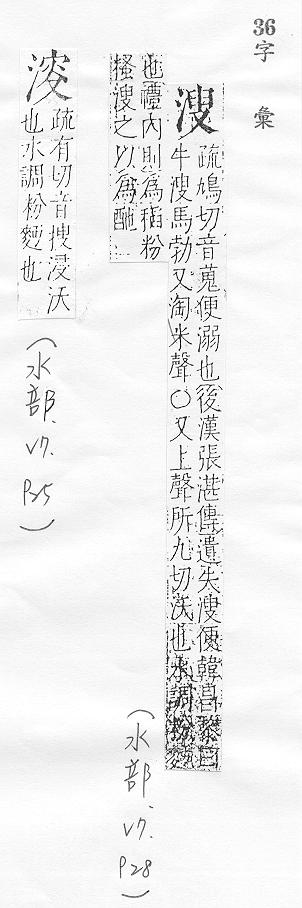 36
字彙
溲
疏鳩切音蒐便溺也後漢張湛傳遺失溲便韓昌黎曰
牛溲馬勃又淘米聲○又上聲所九切沃也水調粉麵
也禮內則為稻粉
糔溲之以為酏
(水部、V7. P28)
㴑
疏有切音搜浸沃
也水調粉麪也
(水部、V7. P25)